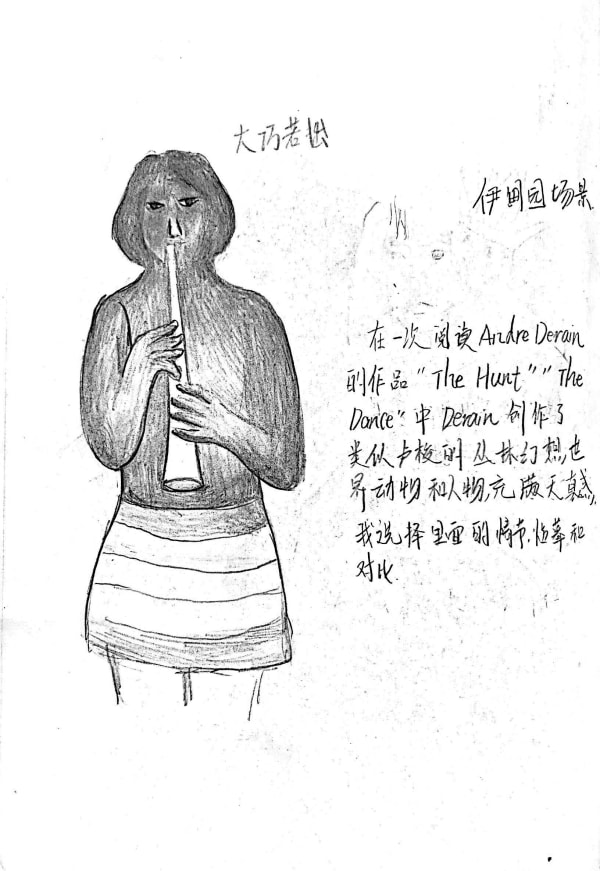 大巧若拙
伊甸园场景
在一次阅读Andre Derain
的作品“The Hunt”“The
Dance”中Derain创作了
类似卢梭的丛林幻想,世
界动物和人物,充满天真感,
我选择里面的情节.临摹和
对比.